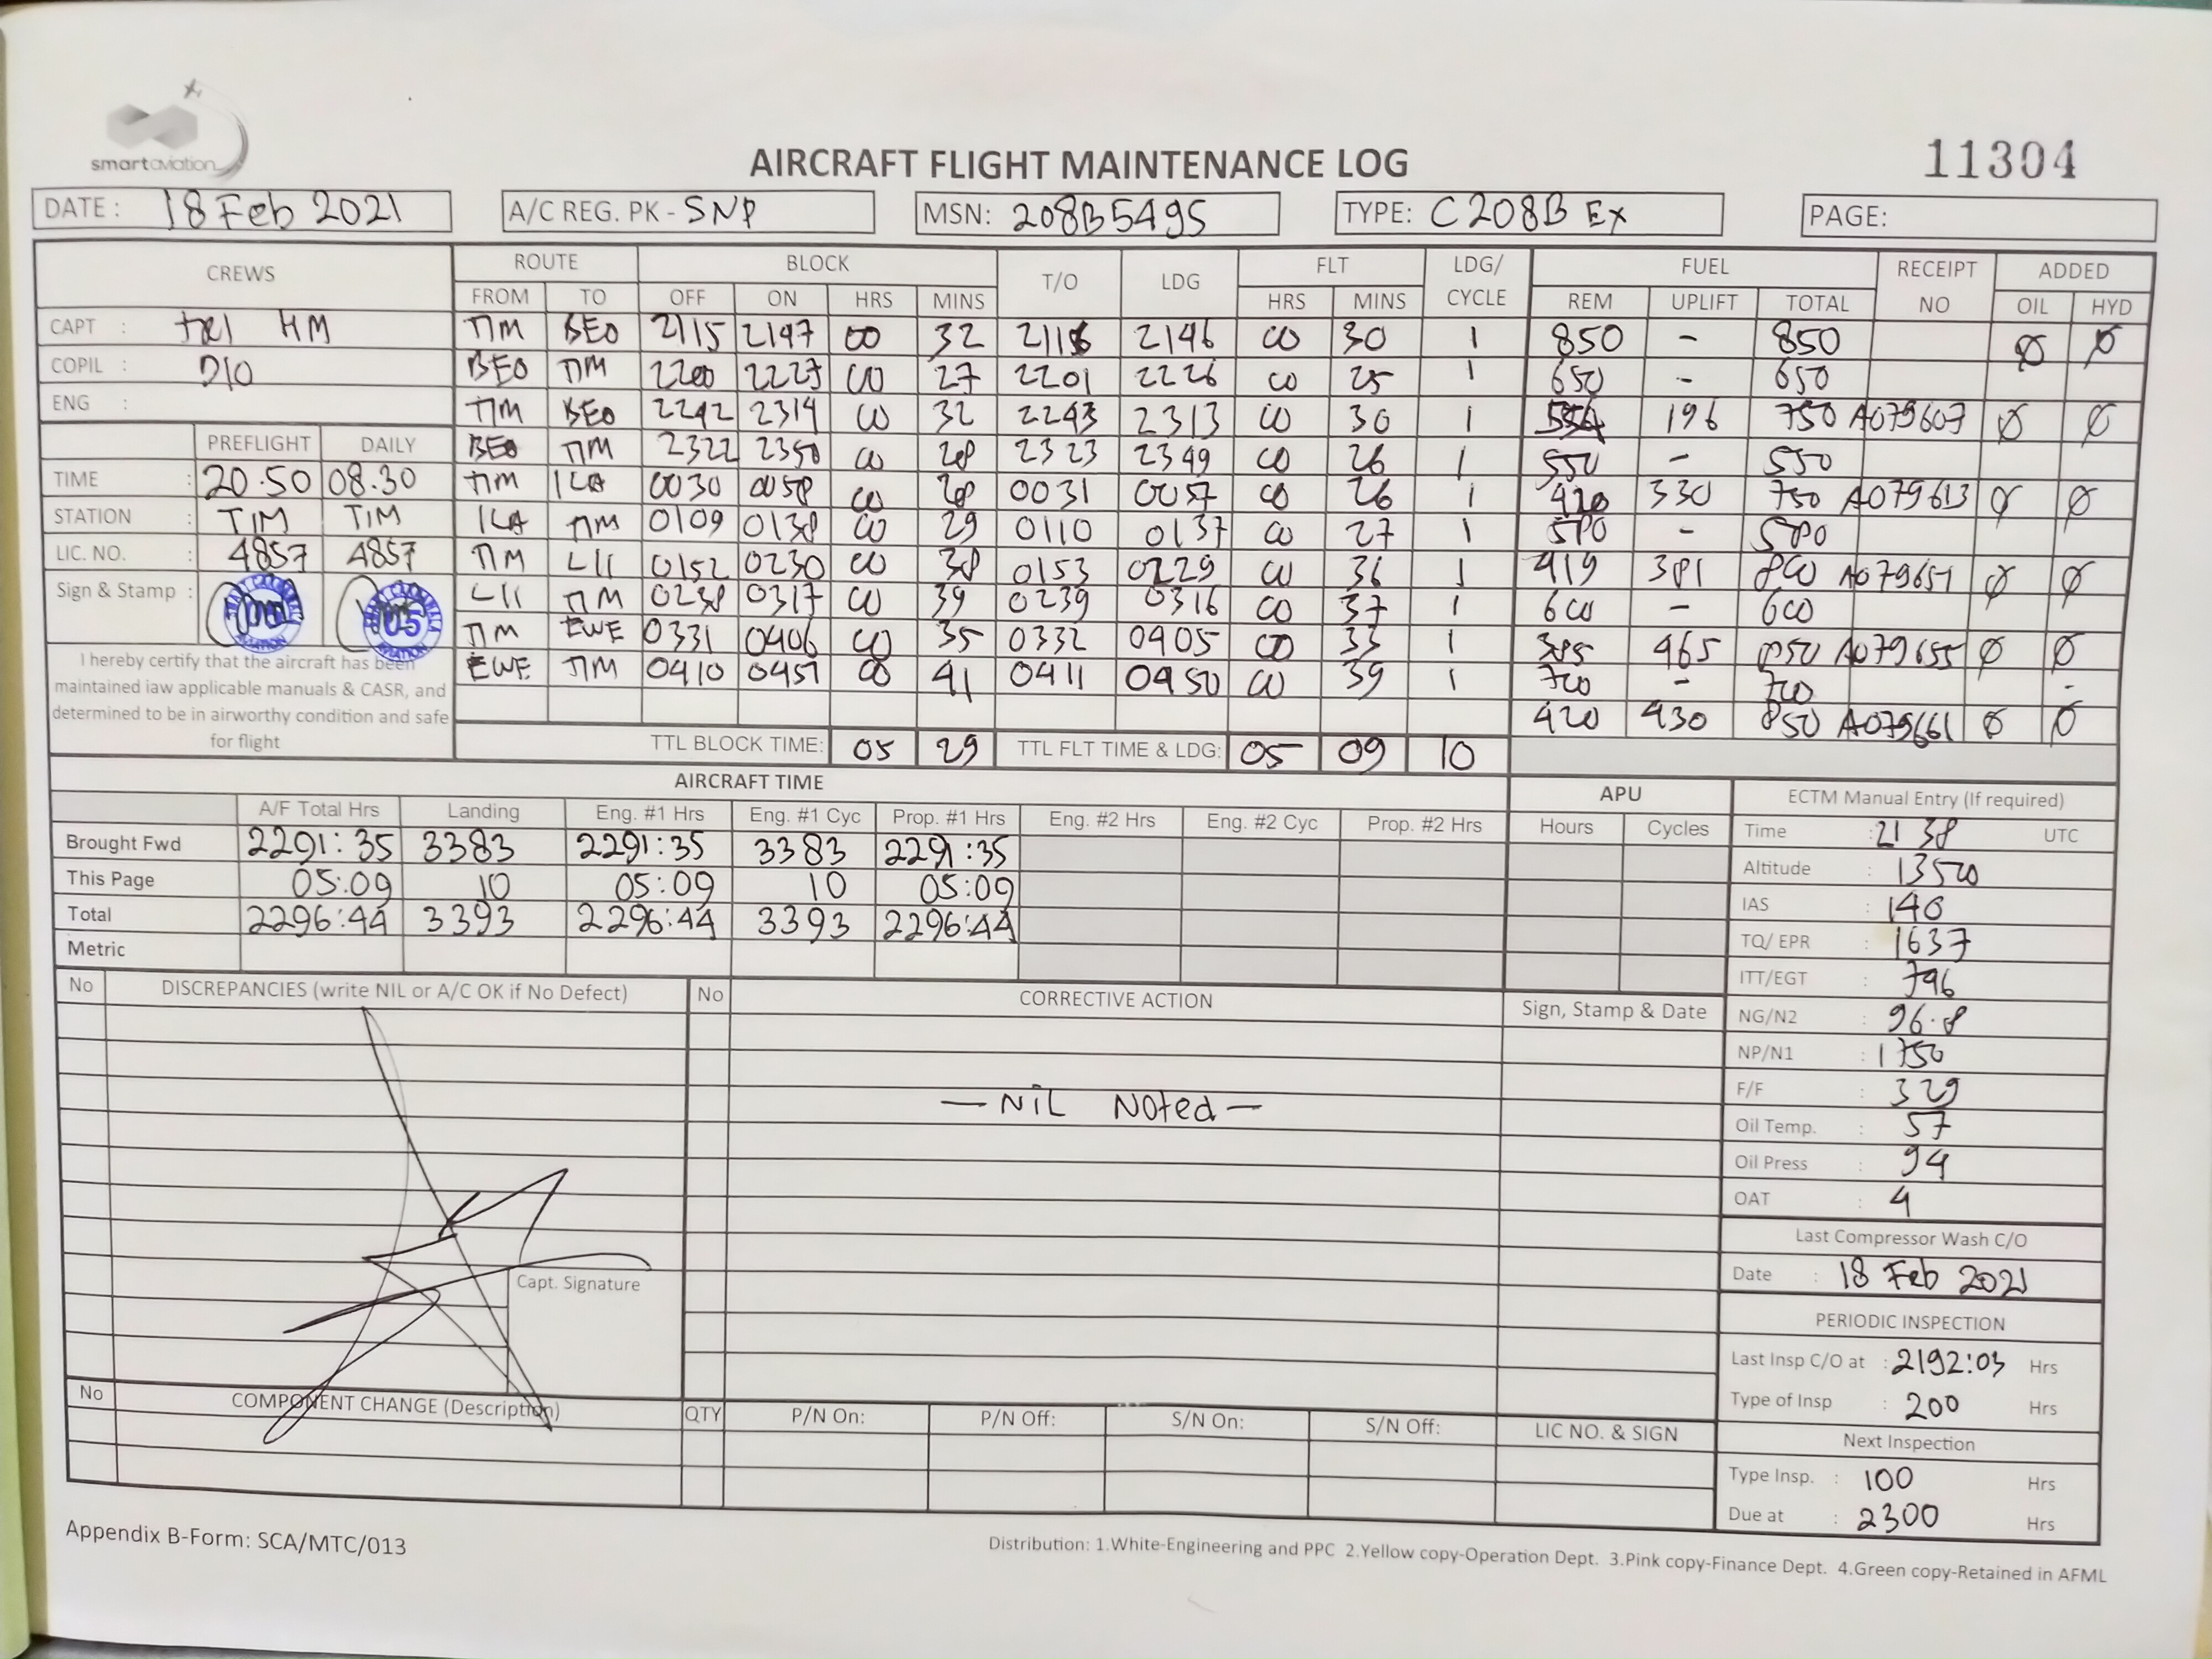 smartaviation
AIRCRAFT FLIGHT MAINTENANCE LOG
11304
DATE : 18 Feb 2021 A/C REG. PK - SNP MSN: 208B5495 TYPE: C208B EX PAGE:
CREWS ROUTE BLOCK T/O LDG FLT LDG/ CYCLE FUEL RECEIPT NO ADDED
FROM TO OFF ON HRS MINS HRS MINS REM UPLIFT TOTAL OIL HYD
CAPT : HM TIM BEO 2115 2147 00 32 2116 2146 00 30 1 850 - 850 Ø Ø
COPIL : DIO BEO TIM 2200 2227 00 27 2201 2226 00 25 1 650 - 650
ENG : TIM BEO 2242 2314 00 32 2243 2313 00 30 1 554 196 750 A079607 Ø Ø
PREFLIGHT DAILY BEO TIM 2322 2350 00 28 2323 2349 00 26 1 550 - 550
TIME : 20.50 08.30 TIM ILA 0030 0058 00 28 0031 0057 00 26 1 420 330 750 A079613 Ø Ø
STATION : TIM TIM ILA TIM 0109 0138 00 29 0110 0137 00 27 1 580 - 580
LIC. NO. : 4857 4857 TIM LII 0152 0230 00 38 0153 0229 00 36 1 419 381 800 A079651 Ø Ø
Sign & Stamp : LII TIM 0238 0317 00 39 0239 0316 00 37 1 600 - 600
TIM EWE 0331 0406 00 35 0332 0405 00 33 1 385 465 850 A079655 Ø Ø
EWE TIM 0410 0451 00 41 0411 0450 00 39 1 700 - 700 -
420 430 850 A079661 Ø Ø
I hereby certify that the aircraft has been
maintained iaw applicable manuals & CASR, and
determined to be in airworthy condition and safe
for flight
TTL BLOCK TIME: 05 29 TTL FLT TIME & LDG: 05 09 10
AIRCRAFT TIME APU ECTM Manual Entry (If required)
A/F Total Hrs Landing Eng. #1 Hrs Eng. #1 Cyc Prop. #1 Hrs Eng. #2 Hrs Eng. #2 Cyc Prop. #2 Hrs Hours Cycles
Brought Fwd 2291:35 3383 2291:35 3383 2291:35
This Page 05:09 10 05:09 10 05:09
Total 2296:44 3393 2296:44 3393 2296:44
Metric
Time : 21 38 UTC
Altitude : 13500
IAS : 140
TQ/ EPR : 1637
ITT/EGT : 796
NG/N2 : 96.8
NP/N1 : 1750
F/F : 329
Oil Temp. : 57
Oil Press : 94
OAT : 4
Last Compressor Wash C/O
Date : 18 Feb 2021
PERIODIC INSPECTION
Last Insp C/O at : 2192:03 Hrs
Type of Insp : 200 Hrs
Next Inspection
Type Insp. : 100 Hrs
Due at : 2300 Hrs
No DISCREPANCIES (write NIL or A/C OK if No Defect) No CORRECTIVE ACTION Sign, Stamp & Date
— NIL Noted —
Capt. Signature
No COMPONENT CHANGE (Description) QTY P/N On: P/N Off: S/N On: S/N Off: LIC NO. & SIGN
Appendix B-Form: SCA/MTC/013
Distribution: 1.White-Engineering and PPC 2.Yellow copy-Operation Dept. 3.Pink copy-Finance Dept. 4.Green copy-Retained in AFML